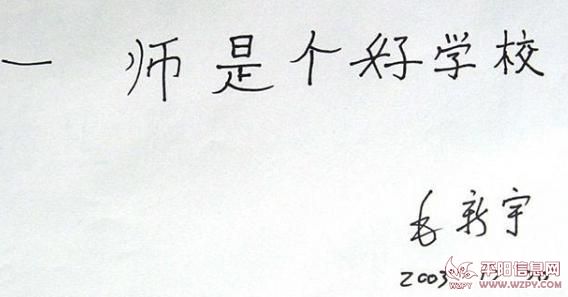 一师是个好学校
毛新宇
2003
平阳信息网
WZPY WWW.WZPY.CC